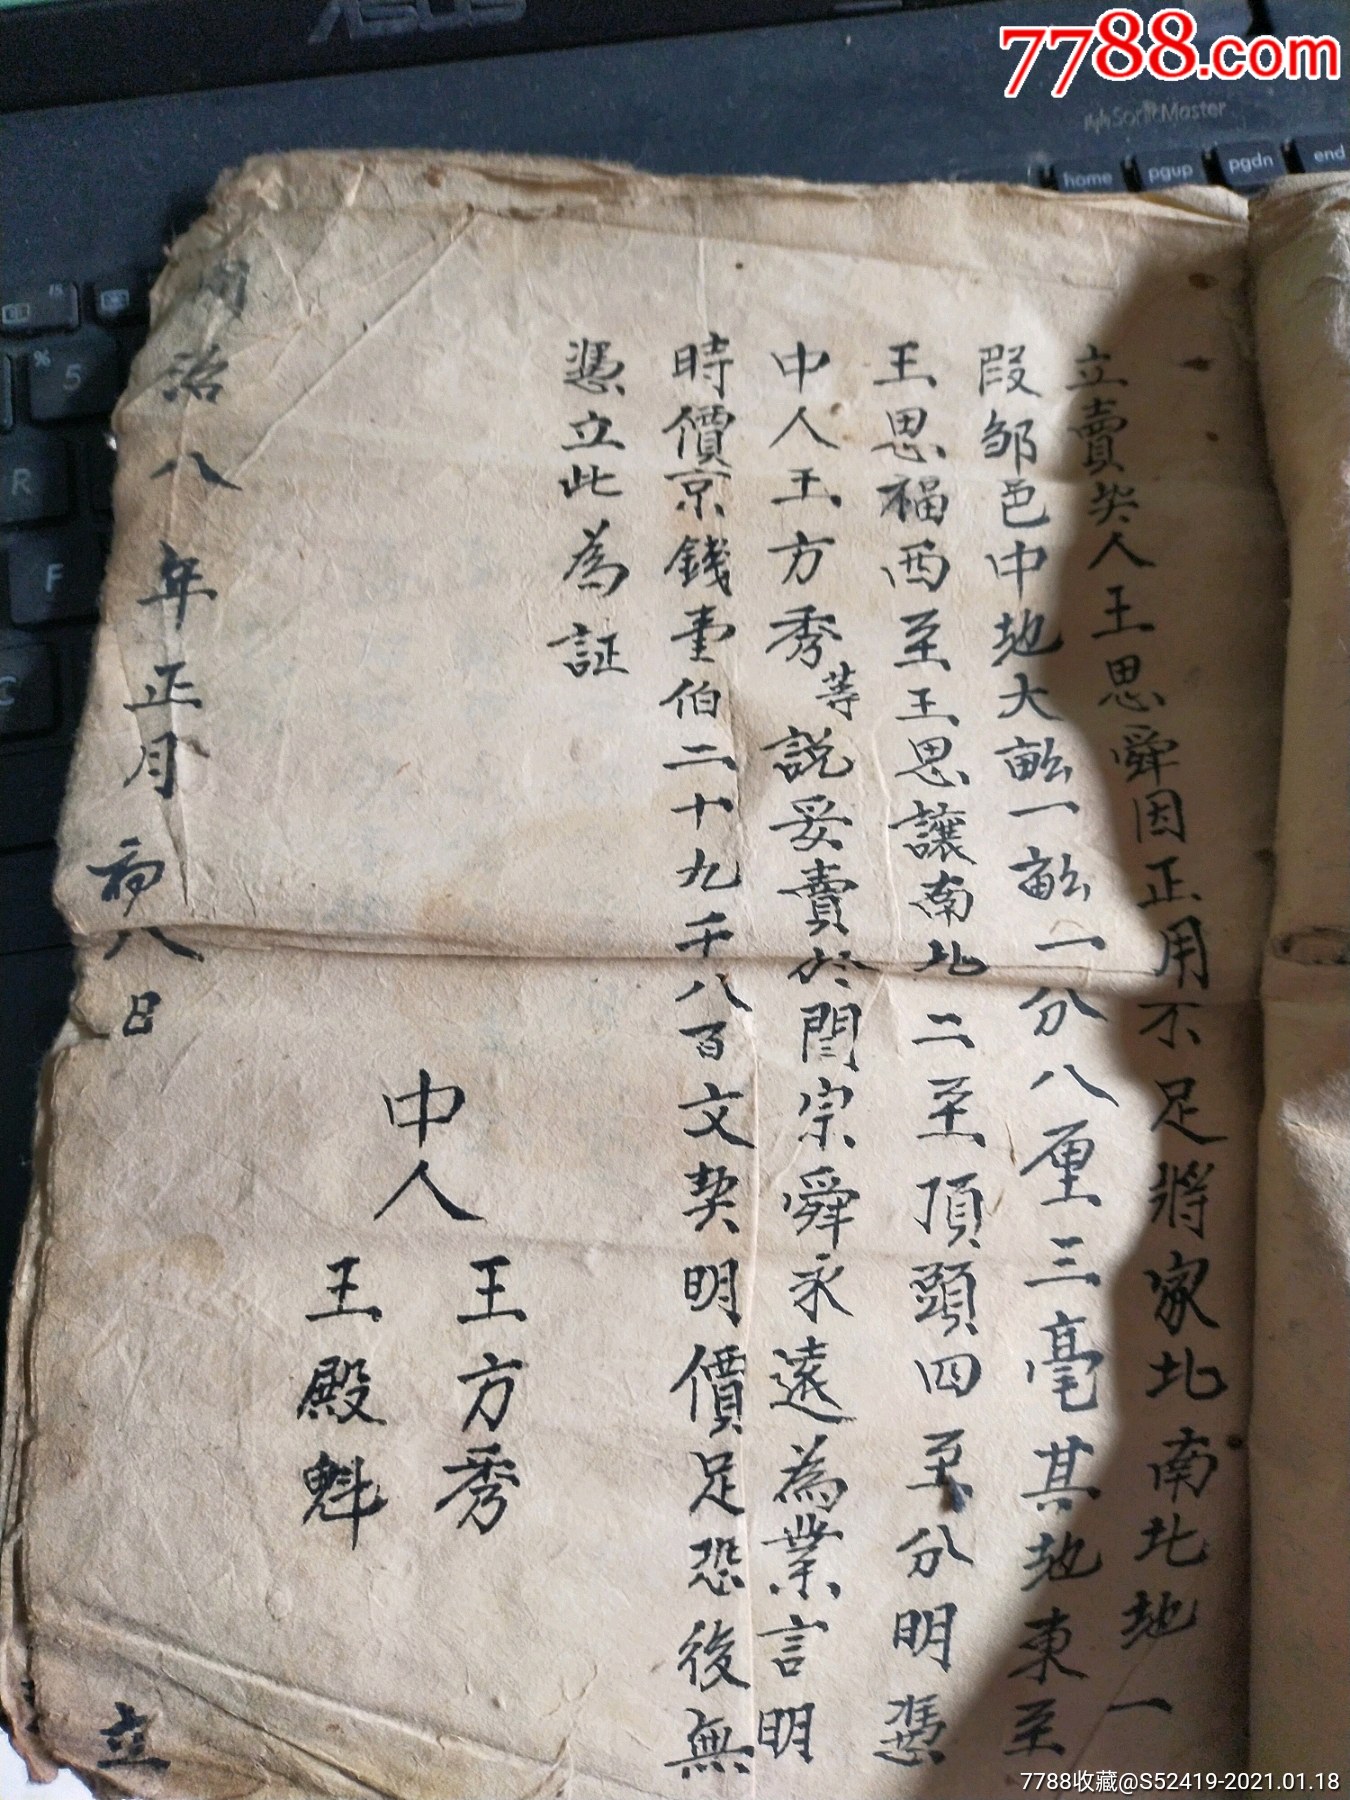 立賣契人王思舜因正用不足將家北南北地一
段邹邑中地大畝一畝一分八厘三毫其地東至
王思福西至王思讓南北二至頂頭四至分明憑
中人王方秀等說妥賣於閆宗舜永遠為業言明
時價京錢壹伯二十九千八百文契明價足恐後無
憑立此為証
中人
王方秀
王殿魁
治八年正月初八日
立
7788.com
ASUS
SonicMaster
home
pgup
pgdn
end
%
5
R
F
C
7788收藏@S52419-2021.01.18